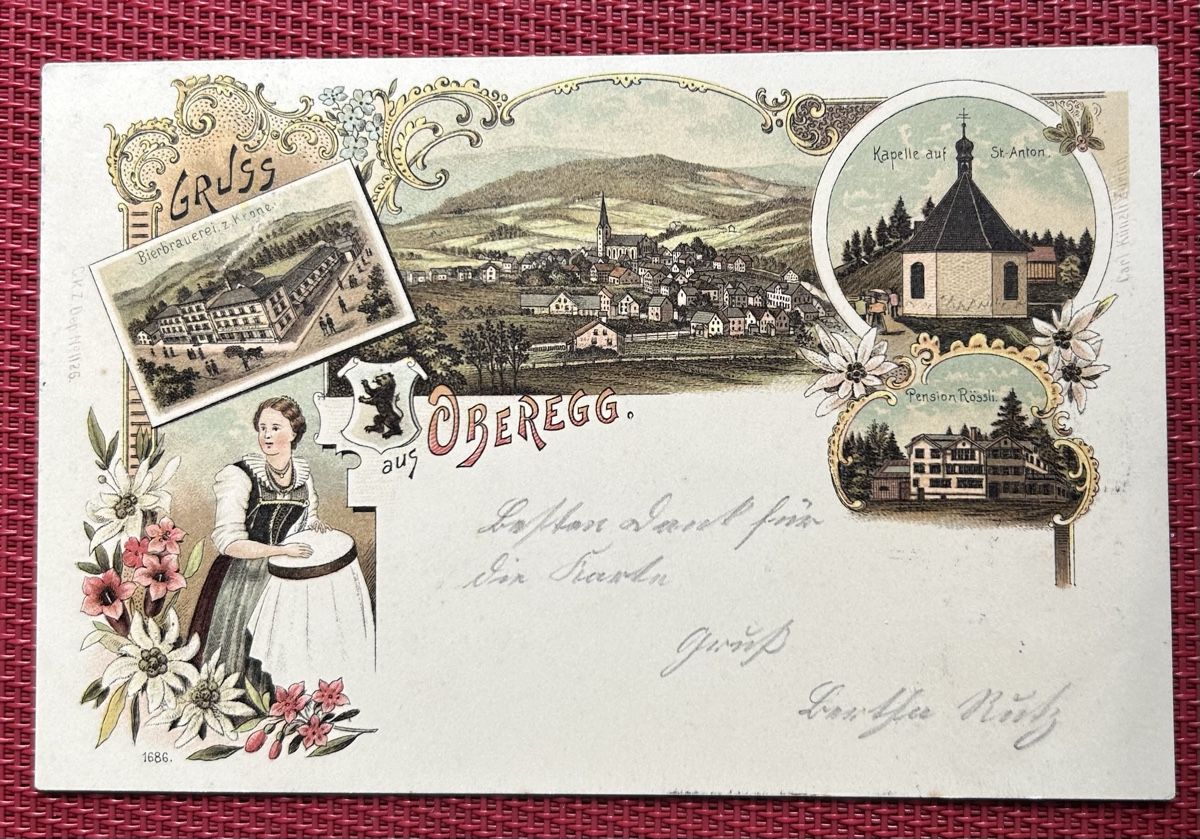 GRUSS
Bierbrauerei z. Krone.
aus OBEREGG.
Kapelle auf St. Anton.
Pension Rössli.
Besten Dank für
die Karte
Gruß
Bertha Rutz
1686.
Carl Künzli Zürich